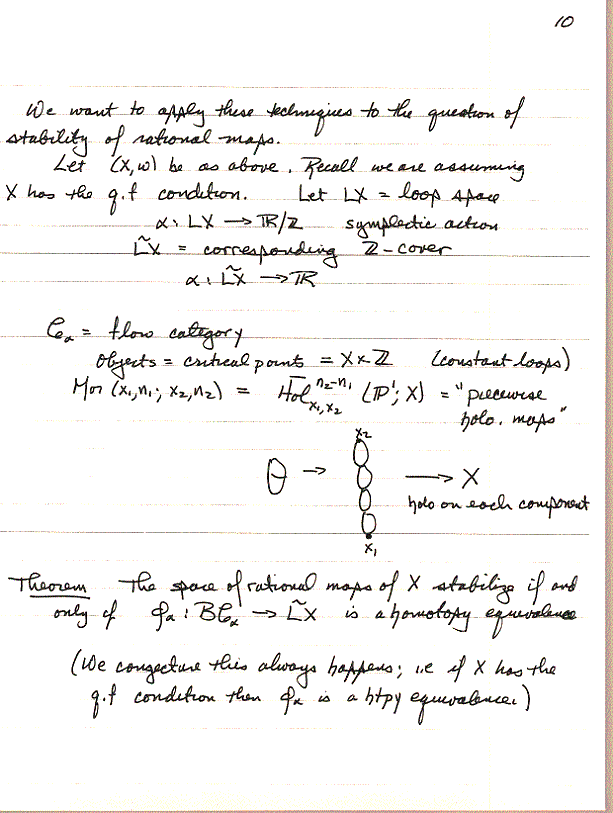 10
We want to apply these techniques to the question of
stability of rational maps.
Let (X, ω) be as above. Recall we are assuming
X has the q.f condition. Let LX = loop space
α: LX → ℝ/ℤ symplectic action
L̃X = corresponding ℤ-cover
α: L̃X → ℝ
𝒞α = flow category
Objects = critical points = X × ℤ (constant loops)
Mor (x₁,n₁; x₂,n₂) = H̄ol^{n₂-n₁}_{x₁,x₂} (ℙ¹; X) = "piecewise
holo. maps"
x₂
→ → X
holo on each component
x₁
Theorem The space of rational maps of X stabilize if and
only if φα: B𝒞α → L̃X is a homotopy equivalence
(We congecture this always happens; i.e if X has the
q.f condition then φα is a htpy equivalence.)